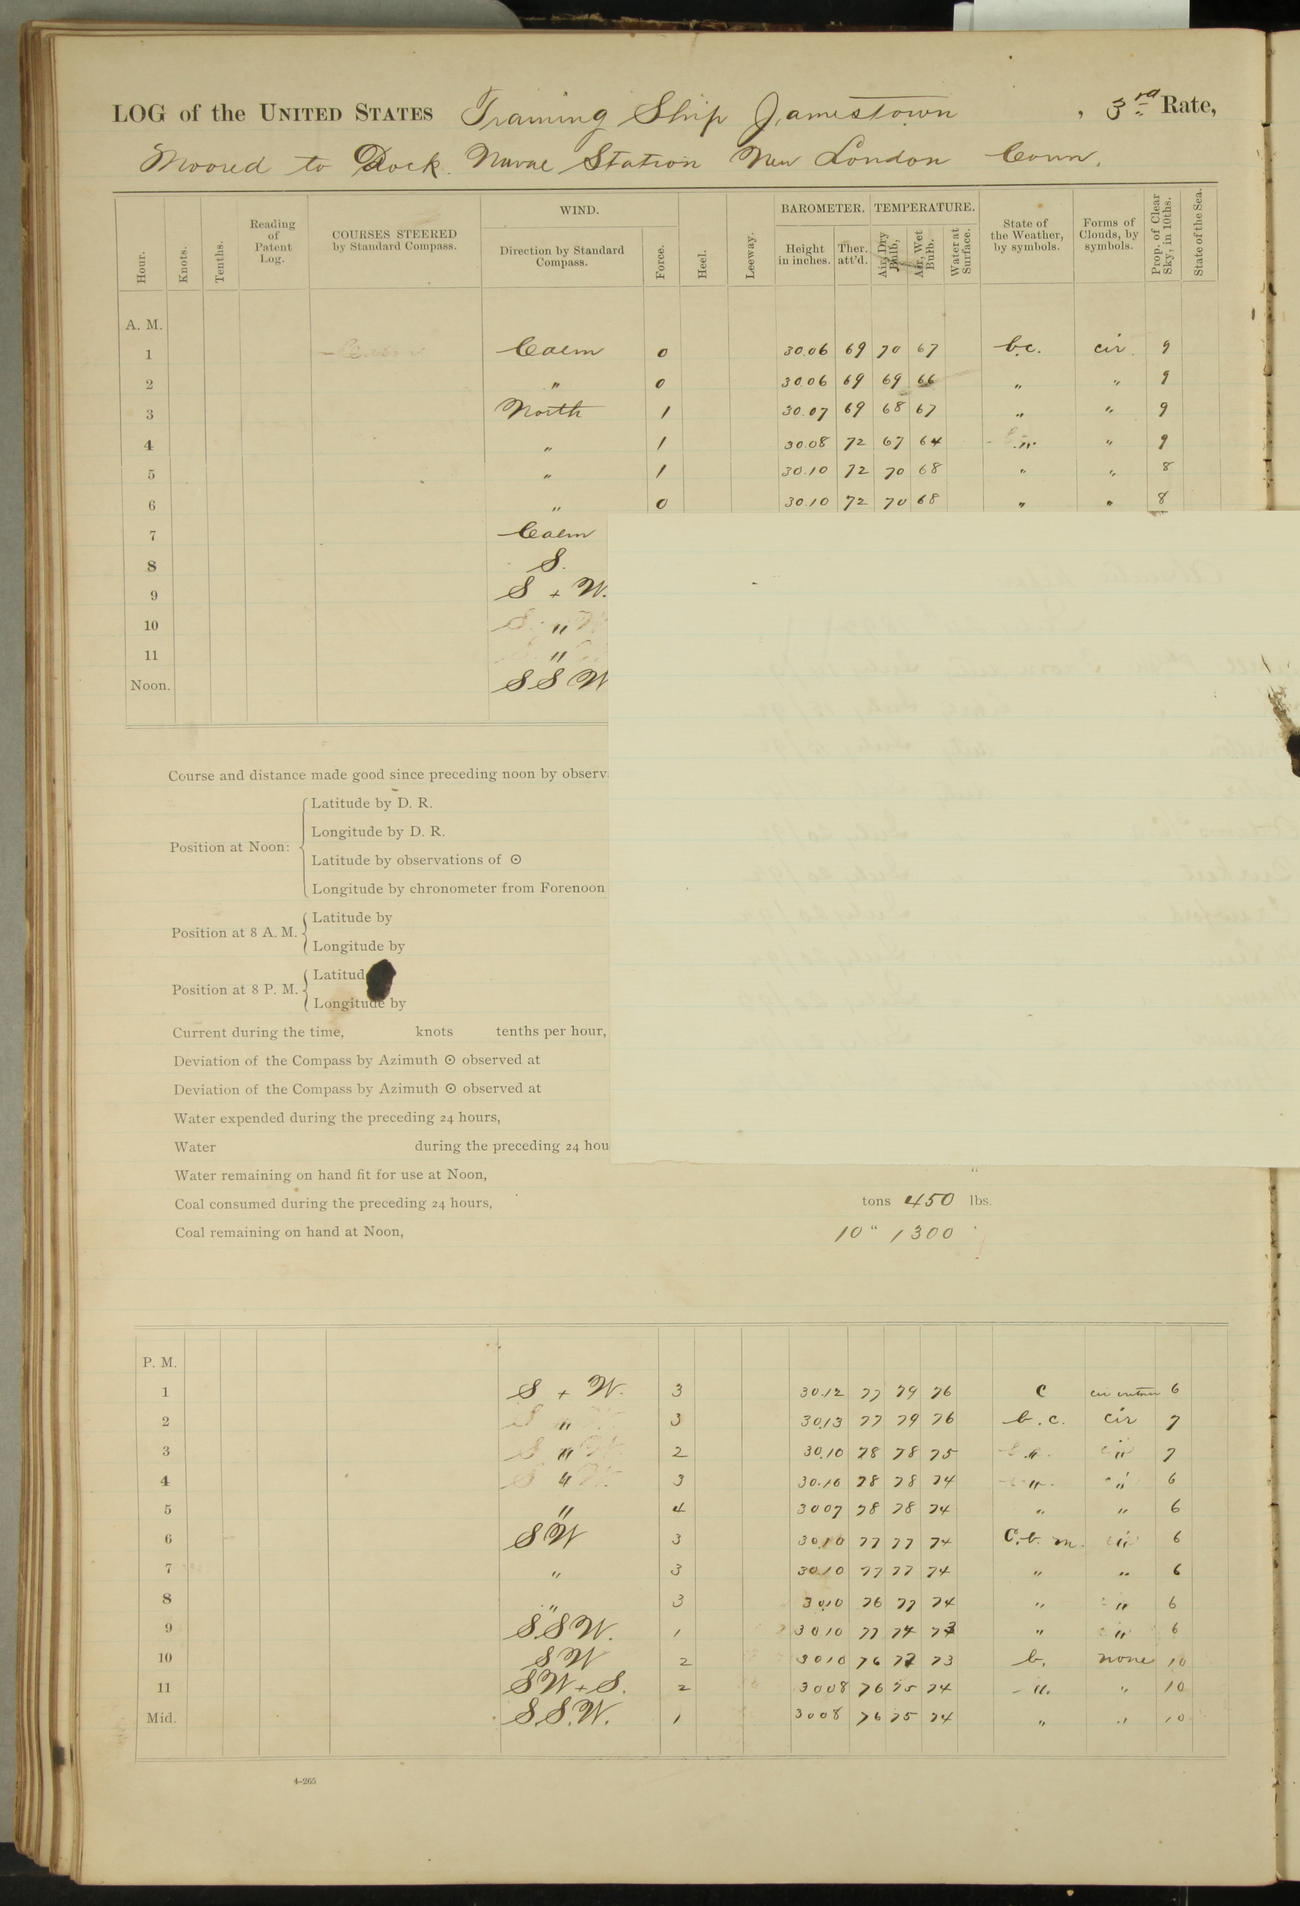 LOG of the UNITED STATES Training Ship Jamestown , 3rd Rate,
Moored to Dock. Naval Station New London Conn.
Hour. Knots. Tenths. Reading of Patent Log. COURSES STEERED by Standard Compass. WIND. Direction by Standard Compass. Force. Heel. Leeway. BAROMETER. Height in inches. Ther. att'd. TEMPERATURE. Air, Dry Bulb. Air, Wet Bulb. Water at Surface. State of the Weather, by symbols. Forms of Clouds, by symbols. Prop. of Clear Sky, in 10ths. State of the Sea.
A. M.
1 Calm 0 30.06 69 70 67 b.c. cir. 9
2 " 0 30 06 69 69 66 " " 9
3 North 1 30.07 69 68 67 " " 9
4 " 1 30.08 72 67 64 " " 9
5 " 1 30.10 72 70 68 " " 8
6 " 0 30.10 72 70 68 " " 8
7 Calm
8 S.
9 S + W.
10 "
11 "
Noon. S S W
Course and distance made good since preceding noon by observ
Position at Noon:
Latitude by D. R.
Longitude by D. R.
Latitude by observations of ⊙
Longitude by chronometer from Forenoon
Position at 8 A. M.
Latitude by
Longitude by
Position at 8 P. M.
Latitud
Longitude by
Current during the time, knots tenths per hour,
Deviation of the Compass by Azimuth ⊙ observed at
Deviation of the Compass by Azimuth ⊙ observed at
Water expended during the preceding 24 hours,
Water during the preceding 24 hou
Water remaining on hand fit for use at Noon, "
Coal consumed during the preceding 24 hours, tons 450 lbs.
Coal remaining on hand at Noon, 10 " 1300 "
P. M.
1 S + W. 3 30.12 77 79 76 C cir 6
2 " 3 30.13 77 79 76 b.c. cir 7
3 " 2 30.10 78 78 75 " " 7
4 " 3 30.10 78 78 74 " " 6
5 " 4 30 07 78 78 74 " " 6
6 SW 3 30.10 77 77 74 C.b. m. " 6
7 " 3 30.10 77 77 74 " " 6
8 " 3 30.10 76 77 74 " " 6
9 S.S.W. 1 30 10 77 74 73 " " 6
10 SW 2 30 10 76 77 73 b. none 10
11 SW + S. 2 30 08 76 75 74 " " 10
Mid. S.S.W. 1 30 08 76 75 74 " " 10
4-265